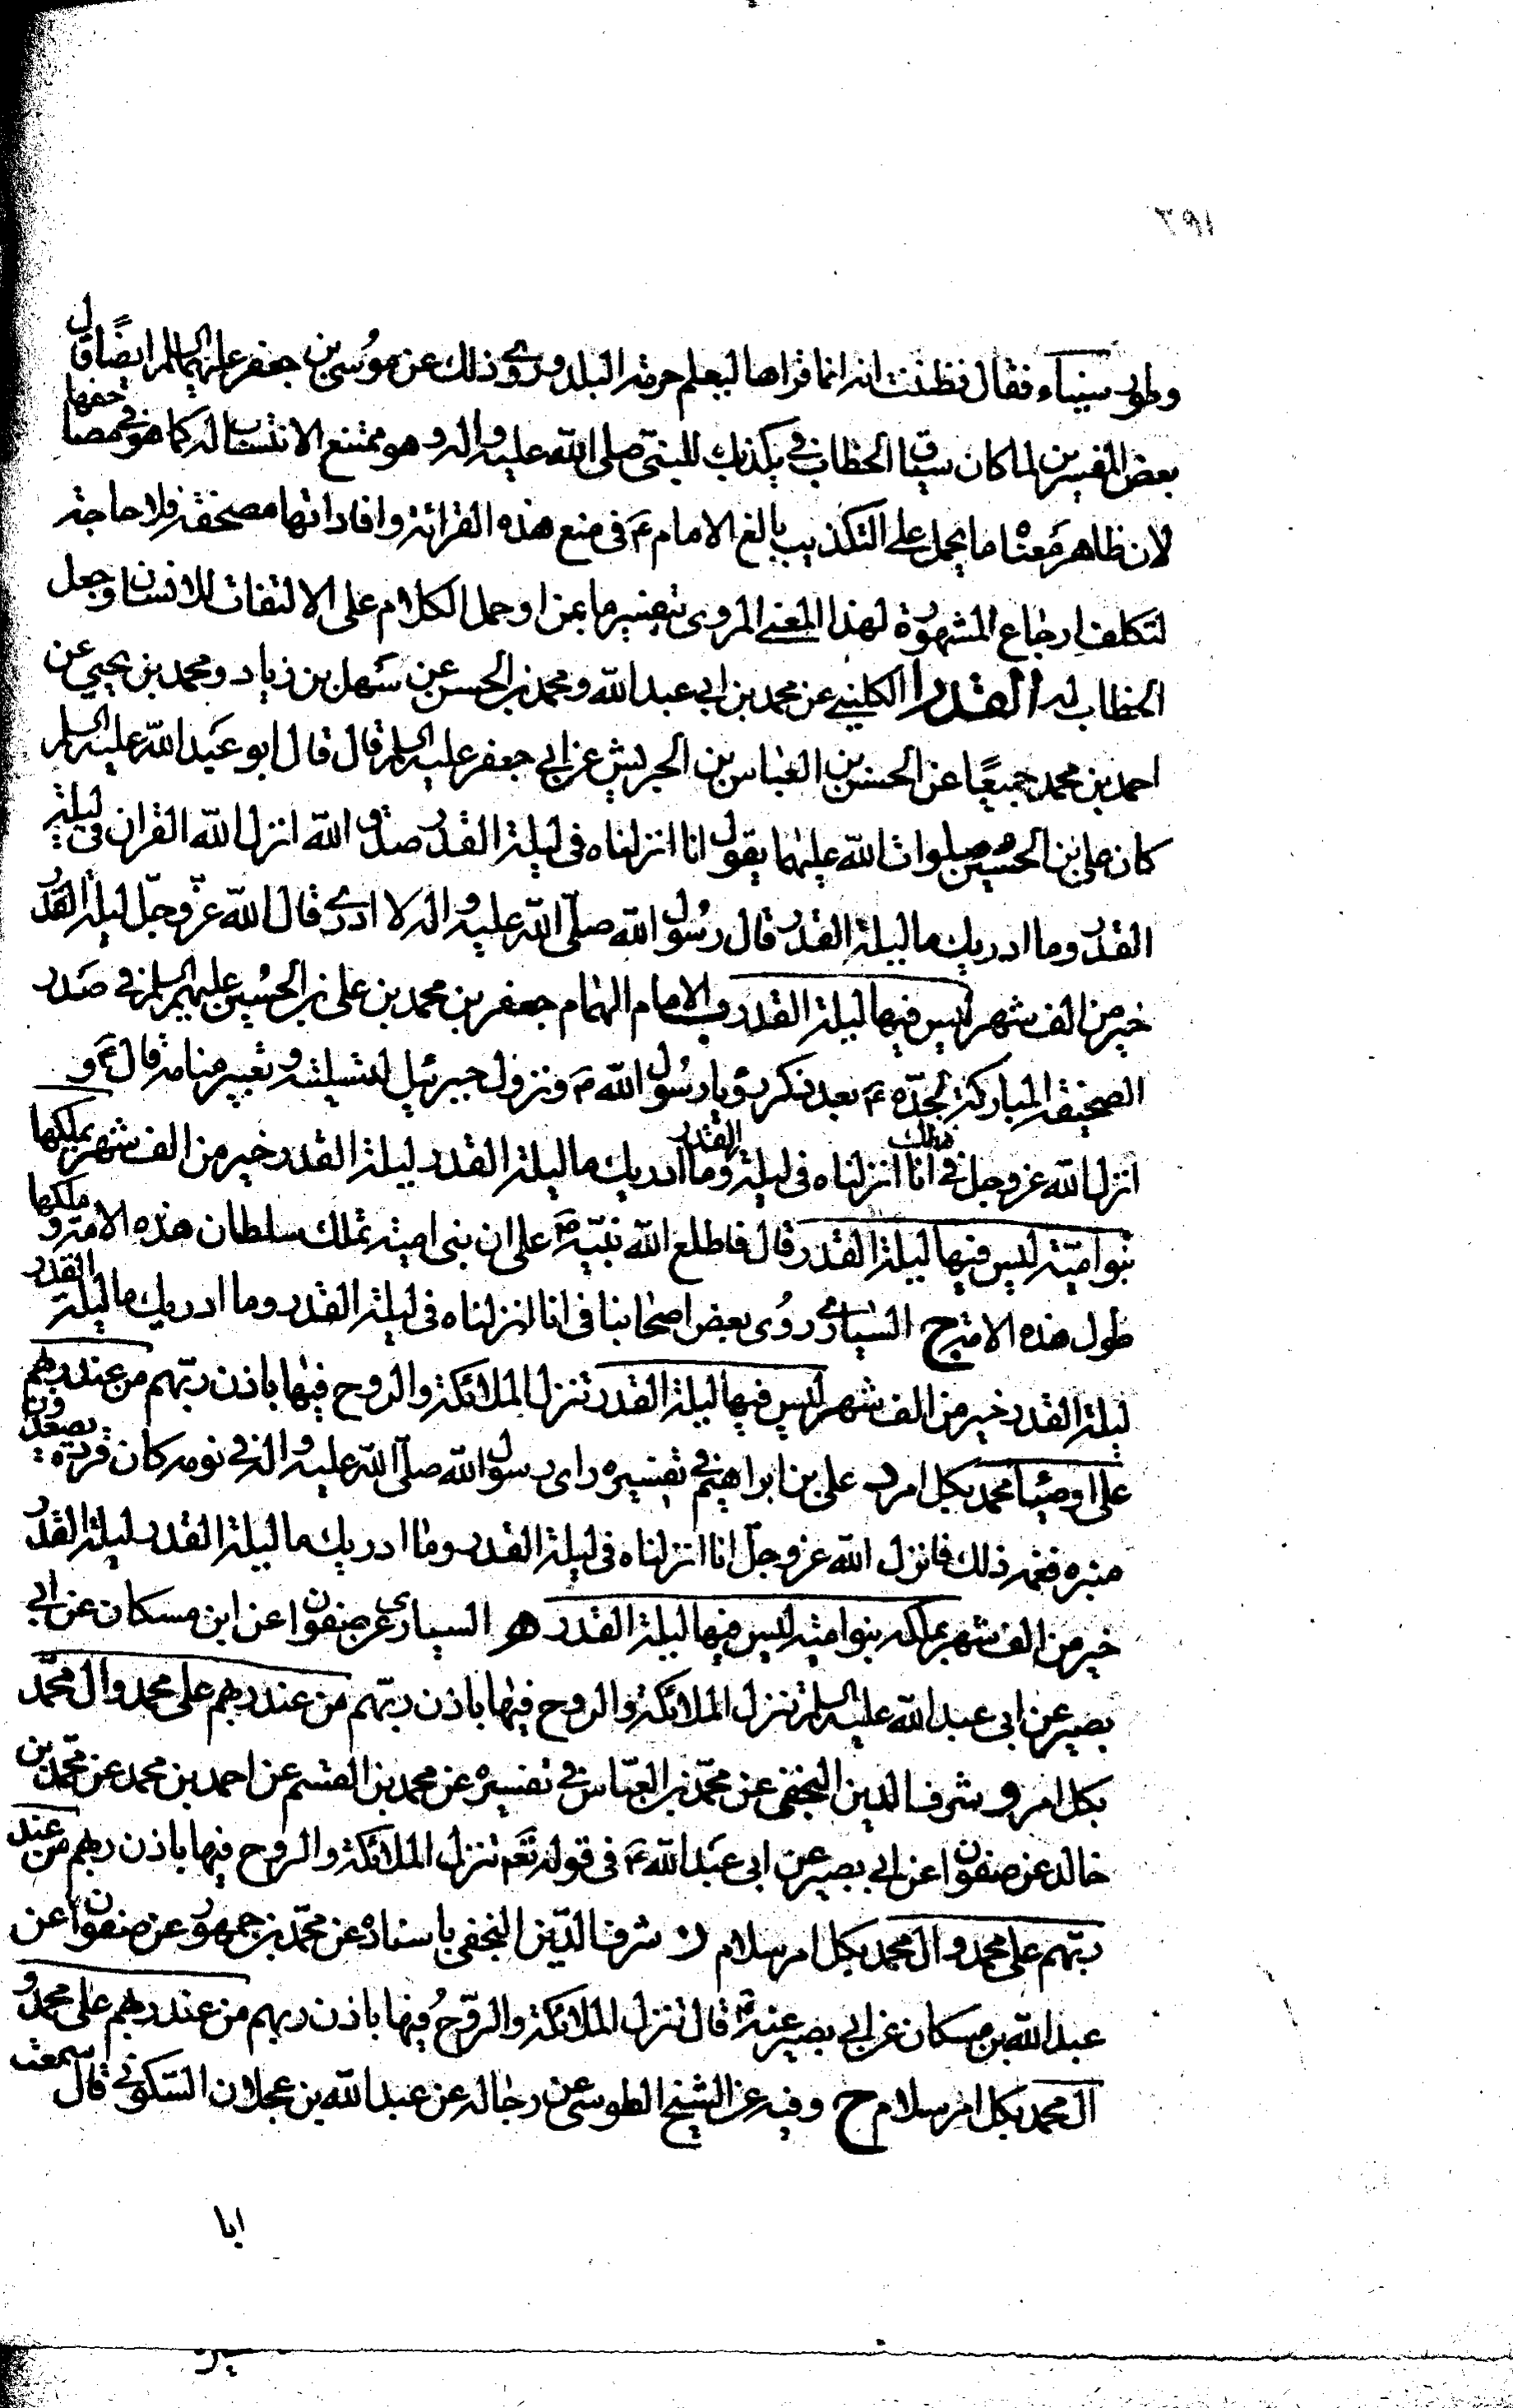 ٣٩١
وطور سيناء فقال فظننت انه انما قراها ليعلم حرمة البلد وروى ذلك عن موسى بن جعفر عليهما السلم ايضا قال
بعض المفسرين لما كان سياق الخطاب في يكذبك للنبي صلى الله عليه واله وهو ممتنع الانتساب اليه كما هو في مصاحفها
لان ظاهر معناه ما يحمل على التكذيب بالغ الامام ع في منع هذه القرائة وافاد انها مصحفة فلا حاجة
لتكلف ارجاع المشهورة لهذا المعنى المروى بتفسير ما بمن او حمل الكلام على الالتفات للانسان وجعل
الخطاب له القدر ا الكليني عن محمد بن ابى عبد الله ومحمد بن الحسن عن سهل بن زياد ومحمد بن يحيى عن
احمد بن محمد جميعا عن الحسن بن العباس بن الحريش عن ابي جعفر عليه السلم قال قال ابو عبد الله عليه السلم
كان على بن الحسين صلوات الله عليهما يقول انا انزلناه فى ليلة القدر صدق الله انزل الله القران في ليلة
القدر وما ادريك ما ليلة القدر قال رسول الله صلى الله عليه واله لا ادرى قال الله عز وجل ليلة القدر
خير من الف شهر ليس فيها ليلة القدر ب الامام الهمام جعفر بن محمد بن على بن الحسين عليهم السلم في صدر
الصحيفة المباركة لجده ع بعد ذكر رؤيا رسول الله ص ونزول جبرئيل لتسليته وتعبير منامه قال ع و
انزل الله عز وجل في ذلك انا انزلناه فى ليلة القدر وما ادريك ما ليلة القدر ليلة القدر خير من الف شهر يملكها
بنو امية ليس فيها ليلة القدر قال فاطلع الله نبيه ص على ان بنى امية تملك سلطان هذه الامة وملكها
طول هذه الامة ج السيارى روى بعض اصحابنا فى انا انزلناه فى ليلة القدر وما ادريك ما ليلة القدر
ليلة القدر خير من الف شهر ليس فيها ليلة القدر تنزل الملائكة والروح فيها باذن ربهم من عند ربهم
على اوصياء محمد بكل امر د على بن ابراهيم في تفسيره راى رسول الله صلى الله عليه واله في نومه كان قردة يصعدون
منبره فغمه ذلك فانزل الله عز وجل انا انزلناه فى ليلة القدر وما ادريك ما ليلة القدر ليلة القدر
خير من الف شهر يملكه بنو امية ليس فيها ليلة القدر ه السيارى عن صفوان عن ابن مسكان عن ابي
بصير عن ابى عبد الله عليه السلم تنزل الملائكة والروح فيها باذن ربهم من عند ربهم على محمد وال محمد
بكل امر و شرف الدين النجفى عن محمد بن العباس في تفسيره عن محمد بن القسم عن احمد بن محمد عن محمد بن
خالد عن صفوان عن ابي بصير عن ابى عبد الله ع فى قوله تعم تنزل الملائكة والروح فيها باذن ربهم من عند
ربهم على محمد وال محمد بكل امر سلام ز شرف الدين النجفى باسناده عن محمد بن جمهور عن صفوان عن
عبد الله بن مسكان عن ابي بصير عنه ع قال تنزل الملائكة والروح فيها باذن ربهم من عند ربهم على محمد و
ال محمد بكل امر سلام ح وفيه عن الشيخ الطوسى عن رجاله عن عبد الله بن عجلان السكونى قال سمعت
ابا